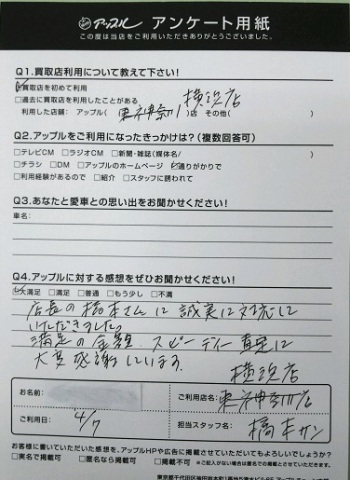 アップル アンケート用紙
この度は当店をご利用いただきありがとうございました。
Q1.買取店利用について教えて下さい!
☑買取店を初めて利用
□過去に買取店を利用したことがある 横浜店
利用した店舗: アップル( 東神奈川 )店 その他( )
Q2.アップルをご利用になったきっかけは?(複数回答可)
□テレビCM □ラジオCM □新聞・雑誌(媒体名/ )
□チラシ □DM □アップルのホームページ ☑通りがかりで
□利用経験があるので □紹介 □スタッフに誘われて
Q3.あなたと愛車との思い出をお聞かせください!
車名:
Q4.アップルに対する感想をぜひお聞かせください!
☑大満足 □満足 □普通 □もう少し □不満
店長の橋本さんに誠実に対応して
いただきました。
満足の金額、スピーディー査定に
大変感謝しています。
横浜店
お名前:
ご利用店名: 東神奈川店
ご利用日: 4/7
担当スタッフ名: 橋本サン
お客様に書いていただいた感想を、アップルHPや広告に掲載させていただいてもよろしいでしょうか?
□実名で掲載可 □匿名なら掲載可 □掲載不可 ※ご記入がない場合は匿名で掲載とさせていただきます。